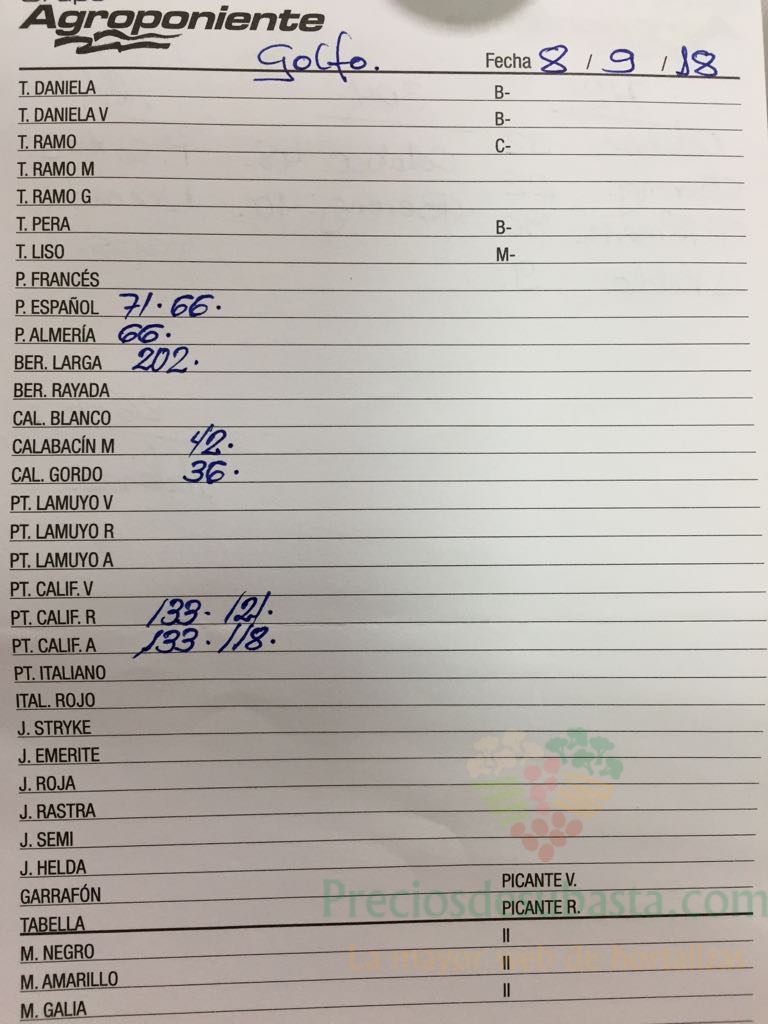 Grupo
Agroponiente
Golfo. Fecha 8 / 9 / 18
T. DANIELA B-
T. DANIELA V B-
T. RAMO C-
T. RAMO M
T. RAMO G
T. PERA B-
T. LISO M-
P. FRANCÉS
P. ESPAÑOL 71. 66.
P. ALMERÍA 66.
BER. LARGA 202.
BER. RAYADA
CAL. BLANCO
CALABACÍN M 42.
CAL. GORDO 36.
PT. LAMUYO V
PT. LAMUYO R
PT. LAMUYO A
PT. CALIF. V
PT. CALIF. R 133. 121.
PT. CALIF. A 133. 118.
PT. ITALIANO
ITAL. ROJO
J. STRYKE
J. EMERITE
J. ROJA
J. RASTRA
J. SEMI
J. HELDA
GARRAFÓN PICANTE V.
TABELLA PICANTE R.
M. NEGRO II
M. AMARILLO II
M. GALIA II
Preciosdesubasta.com
La mayor web de hortalizas